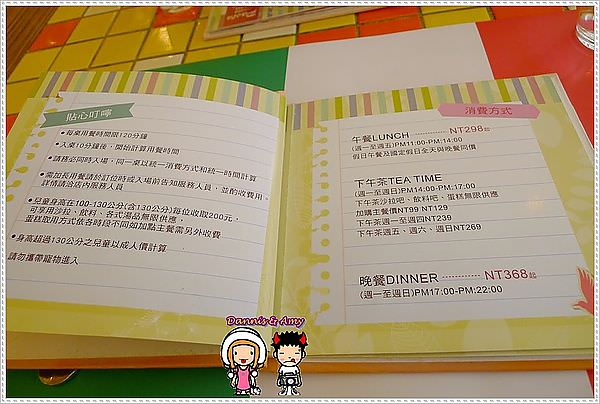 貼心叮嚀
●每桌用餐時間限120分鐘
●入桌10分鐘後，開始計算用餐時間
●請務必同時入場，同一桌以統一消費方式和統一時間計算
●需加長用餐請於訂位時或入場前告知服務人員，並酌收費用。
詳情請洽店內服務人員
●兒童身高在100-130公分(含130公分)每位收取200元，
可享用沙拉、飲料、各式湯品無限供應，
蛋糕取用方式依各時段不同如加點主餐需另外收費
●身高超過130公分之兒童以成人價計算
請勿攜帶寵物進入
消費方式
午餐LUNCH ············ NT298起
(週一至週五)PM11:00-PM:14:00
假日午餐及國定假日全天與晚餐同價
下午茶TEA TIME
(週一至週日)PM14:00-PM:17:00
下午茶沙拉吧、飲料吧、蛋糕無限供應
加購主餐價NT99 NT129
下午茶週一至週四NT239
下午茶週五、週六、週日NT269
晚餐DINNER ············ NT368起
(週一至週日)PM17:00-PM:22:00
Dannis & Amy